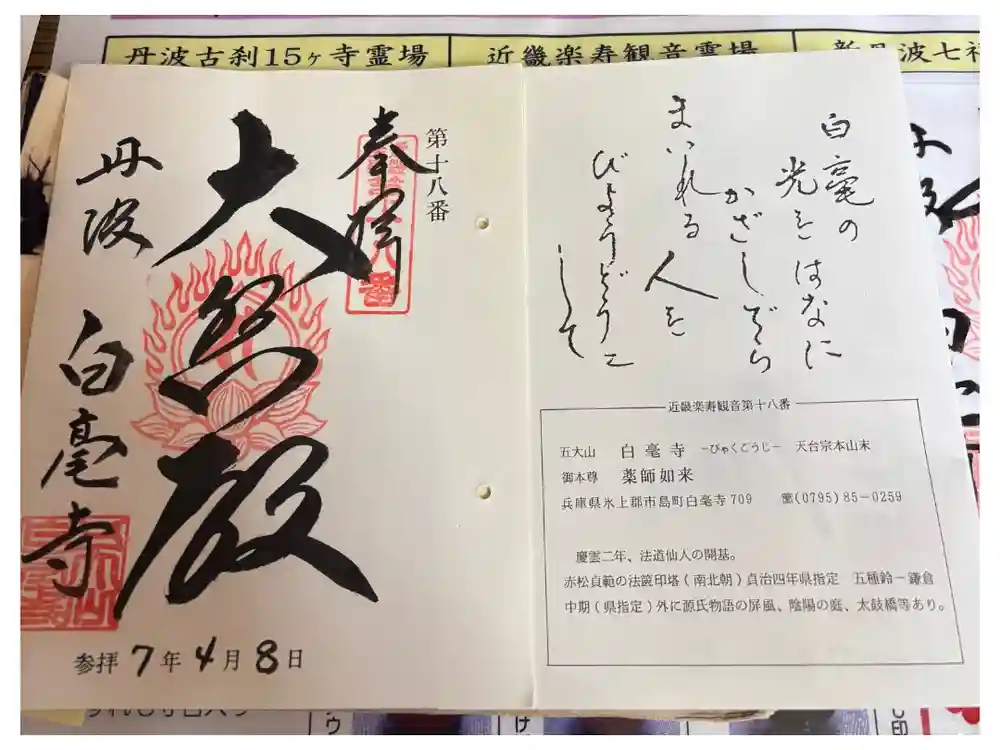 丹波古刹15ヶ寺霊場
近畿楽寿観音霊場
新丹波七福
白毫の
光をはなに
かざしぞら
まいれる人を
びょうどうに
して
近畿楽寿観音第十八番
五大山 白毫寺 −びゃくごうじ− 天台宗本山末
御本尊 薬師如来
兵庫県氷上郡市島町白毫寺709 ☎(0795)85-0259
慶雲二年、法道仙人の開基。
赤松貞範の法篋印塔(南北朝)貞治四年県指定 五種鈴−鎌倉
中期(県指定)外に源氏物語の屏風、陰陽の庭、太鼓橋等あり。
第十八番
奉拝
大悲殿
丹波 白毫寺
参拝7年4月8日